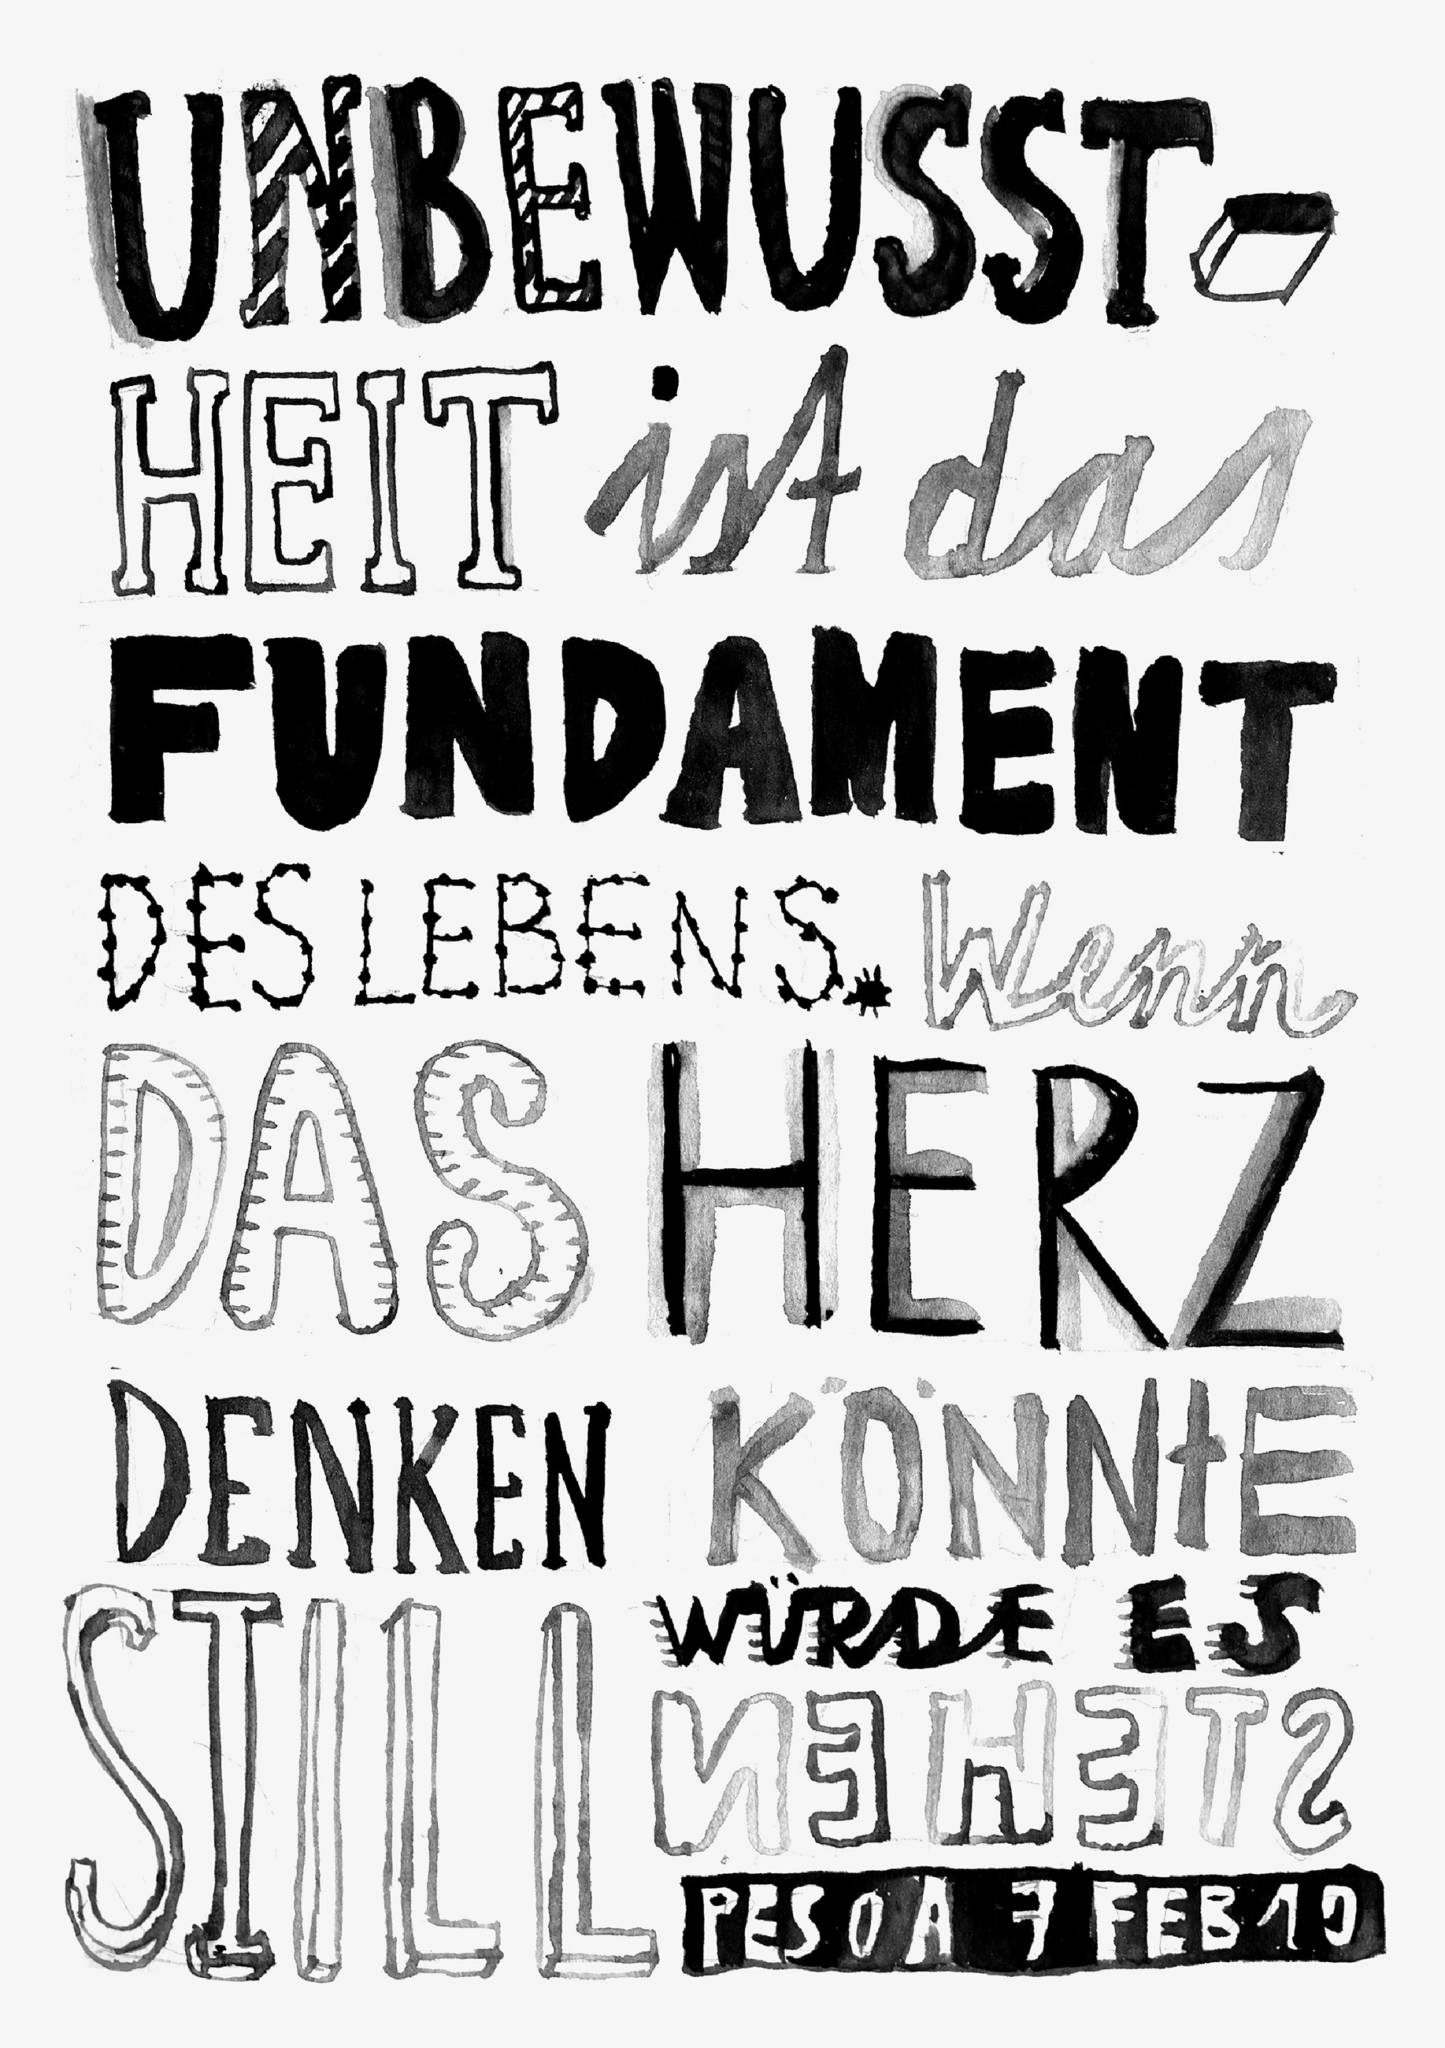 UNBEWUSST-
HEIT ist das
FUNDAMENT
DES LEBENS. Wenn
DAS HERZ
DENKEN KÖNNtE
STILL WÜRDE ES
STEHEN
PESOA 7 FEB 10